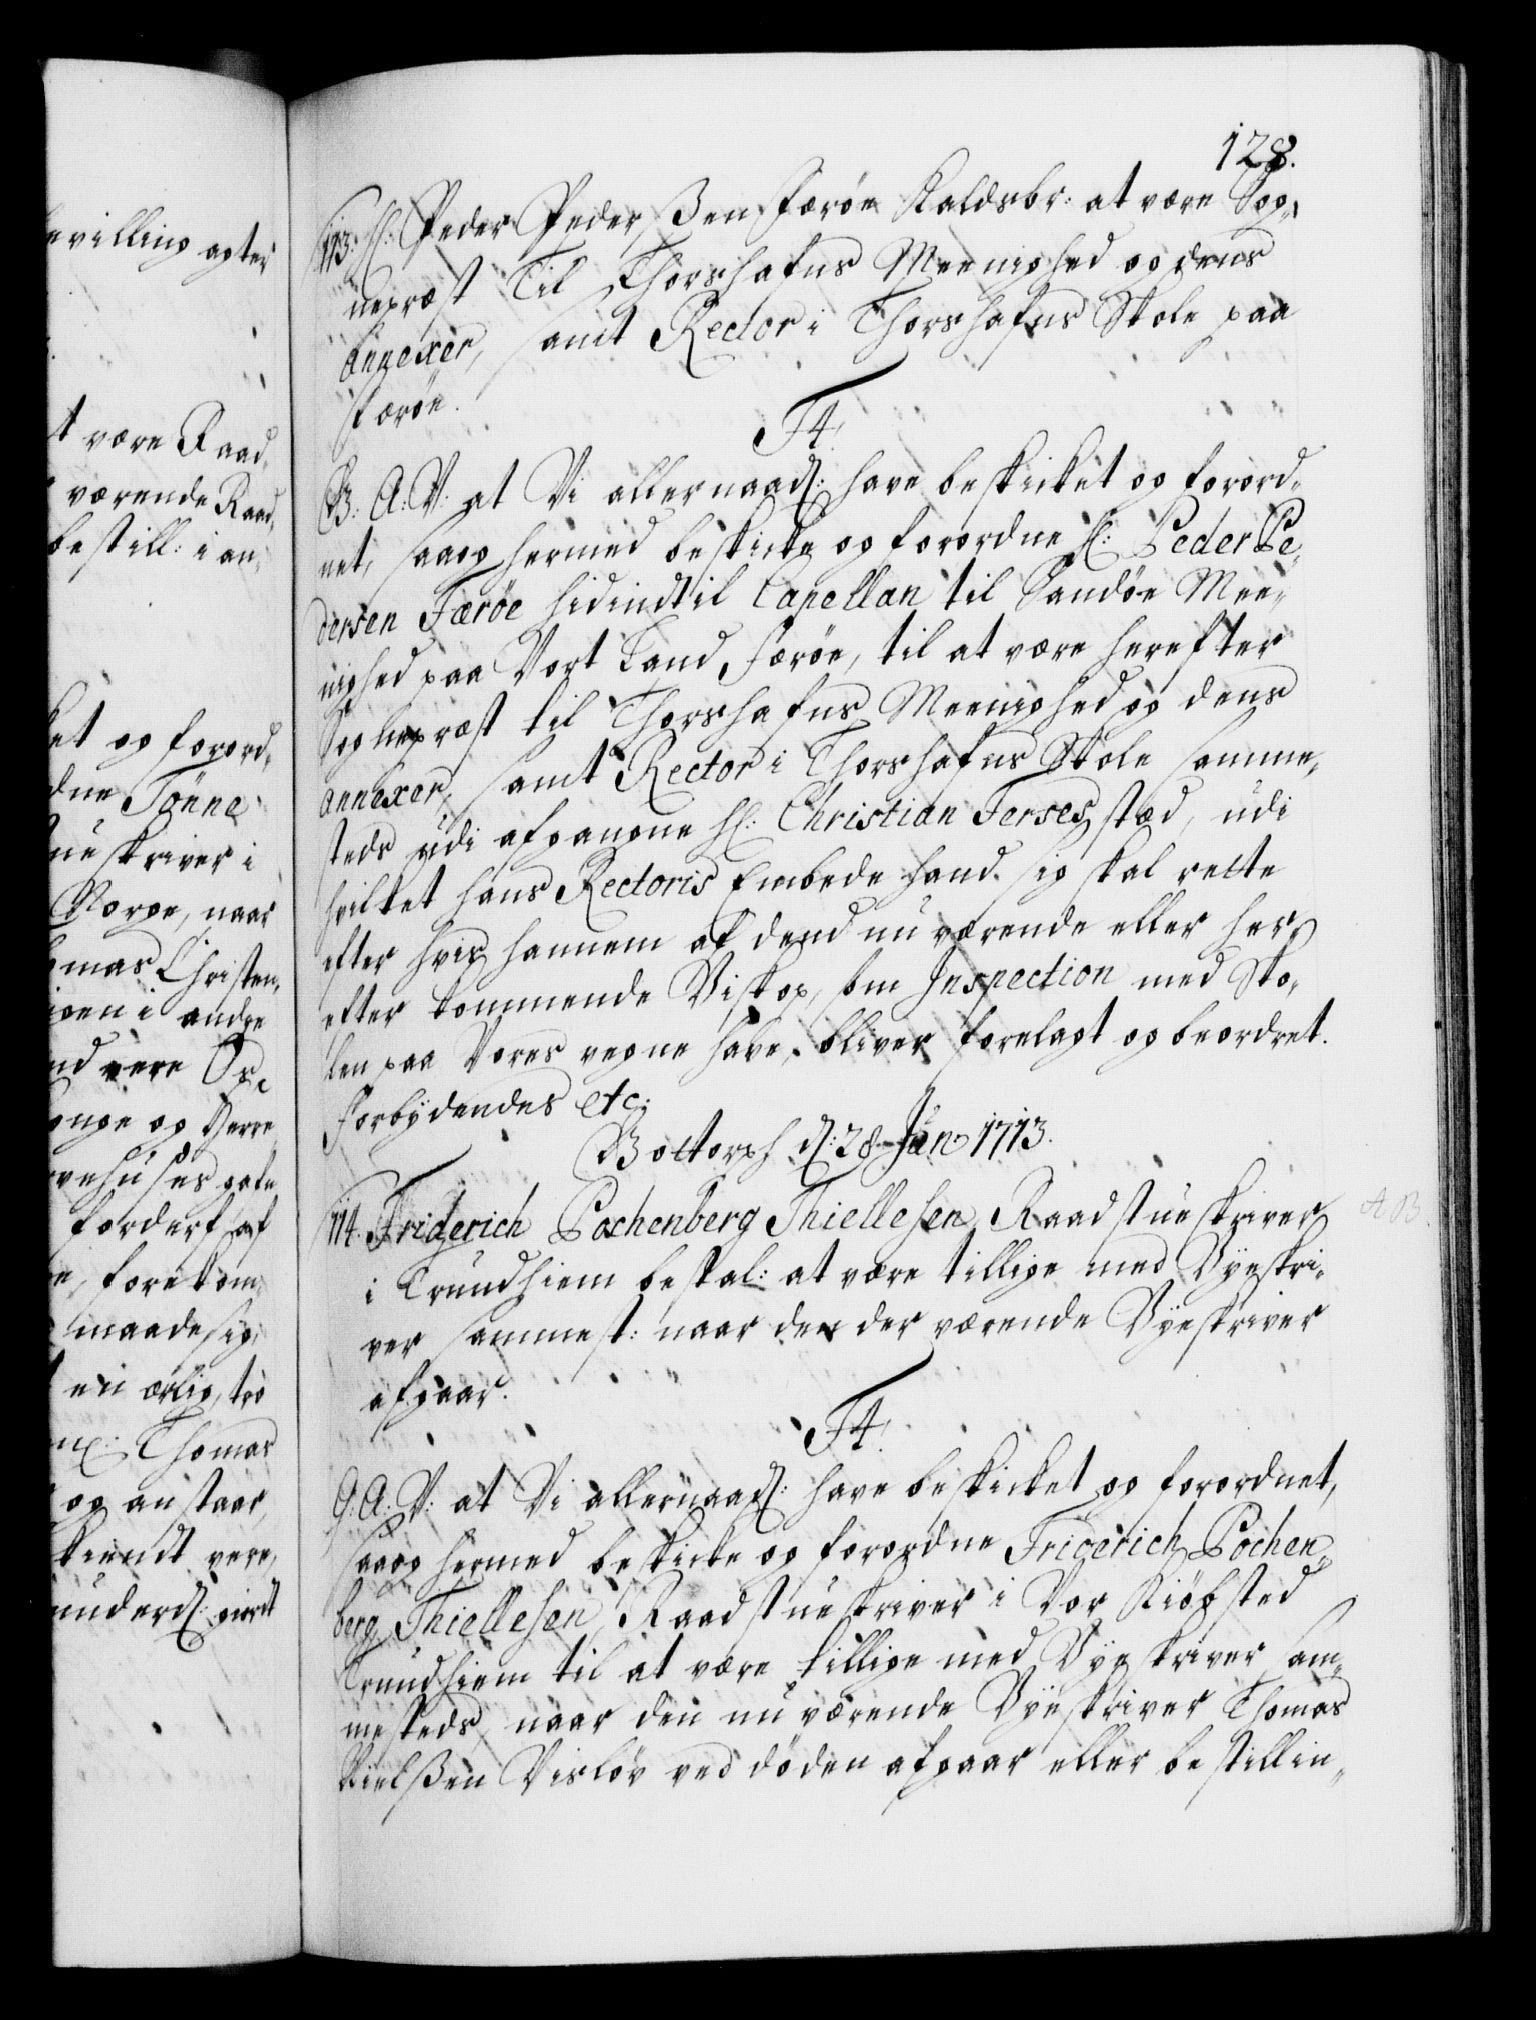 128.
113. Hr: Peder Pederßen Færøe Kaldsbr: at være Sog„
nepræst Til Thorshafns Meenighed og dens
annexer, samt Rector i Thorshafns Skole paa
Færøe.
F4.
G: A: V: at Vi allernaadl: have beskicket og forord„
net, saa og hermed beskicke og forordne Hr: Peder Pe„
dersen Færøe hidindtil Capellan til Sandøe Mee„
nighed paa Vort Land Færøe, til at være herefter
Sognepræst til Thorshafns Meenighed og dens
annexer, samt Rector i Thorshafns Skole samme„
steds udi afgangne Hr: Christian Ferses stæd, udi
hvilket hans Rectoris Embede hand sig skal rette
efter hvis hannem af dend nu værende eller her
efter kommende Biskop, som Inspection med Sko„
len paa Vores vegne have, bliver forelagt og beordret.
Forbydendes etc:
Gottorph d: 28 Jan: 1713.
114. Friderich Pochenberg Thiellesen Raadstueskriver
i Trundhiem bestal: at være tillige med Byeskri„
ver sammest: naar den der værende Byeskriver
afgaar.
F4.
G: A: V: at Vi allernaadl: have beskicket og forordnet,
saa og hermed beskicke og forordne Friderich Pochen„
berg Thiellesen, Raadstueskriver i Vor Kiøbsted
Trundhiem til at være tillige med Byeskriver sam„
mesteds, naar den nu værende Byeskriver Thomas
Nielßen Visløv ved døden afgaar eller bestillin„
evilling agter
t være Raad„
værende Raad„
bestill: i an„
et og forord„
dne Tønne
ueskriver i
Norge, naar
omas Christen„
igen i andre
ger og Herre
forderf af
foretom„
maade sig
en ærlig, tro
Thomas
og anstaar,
kiendt vere,